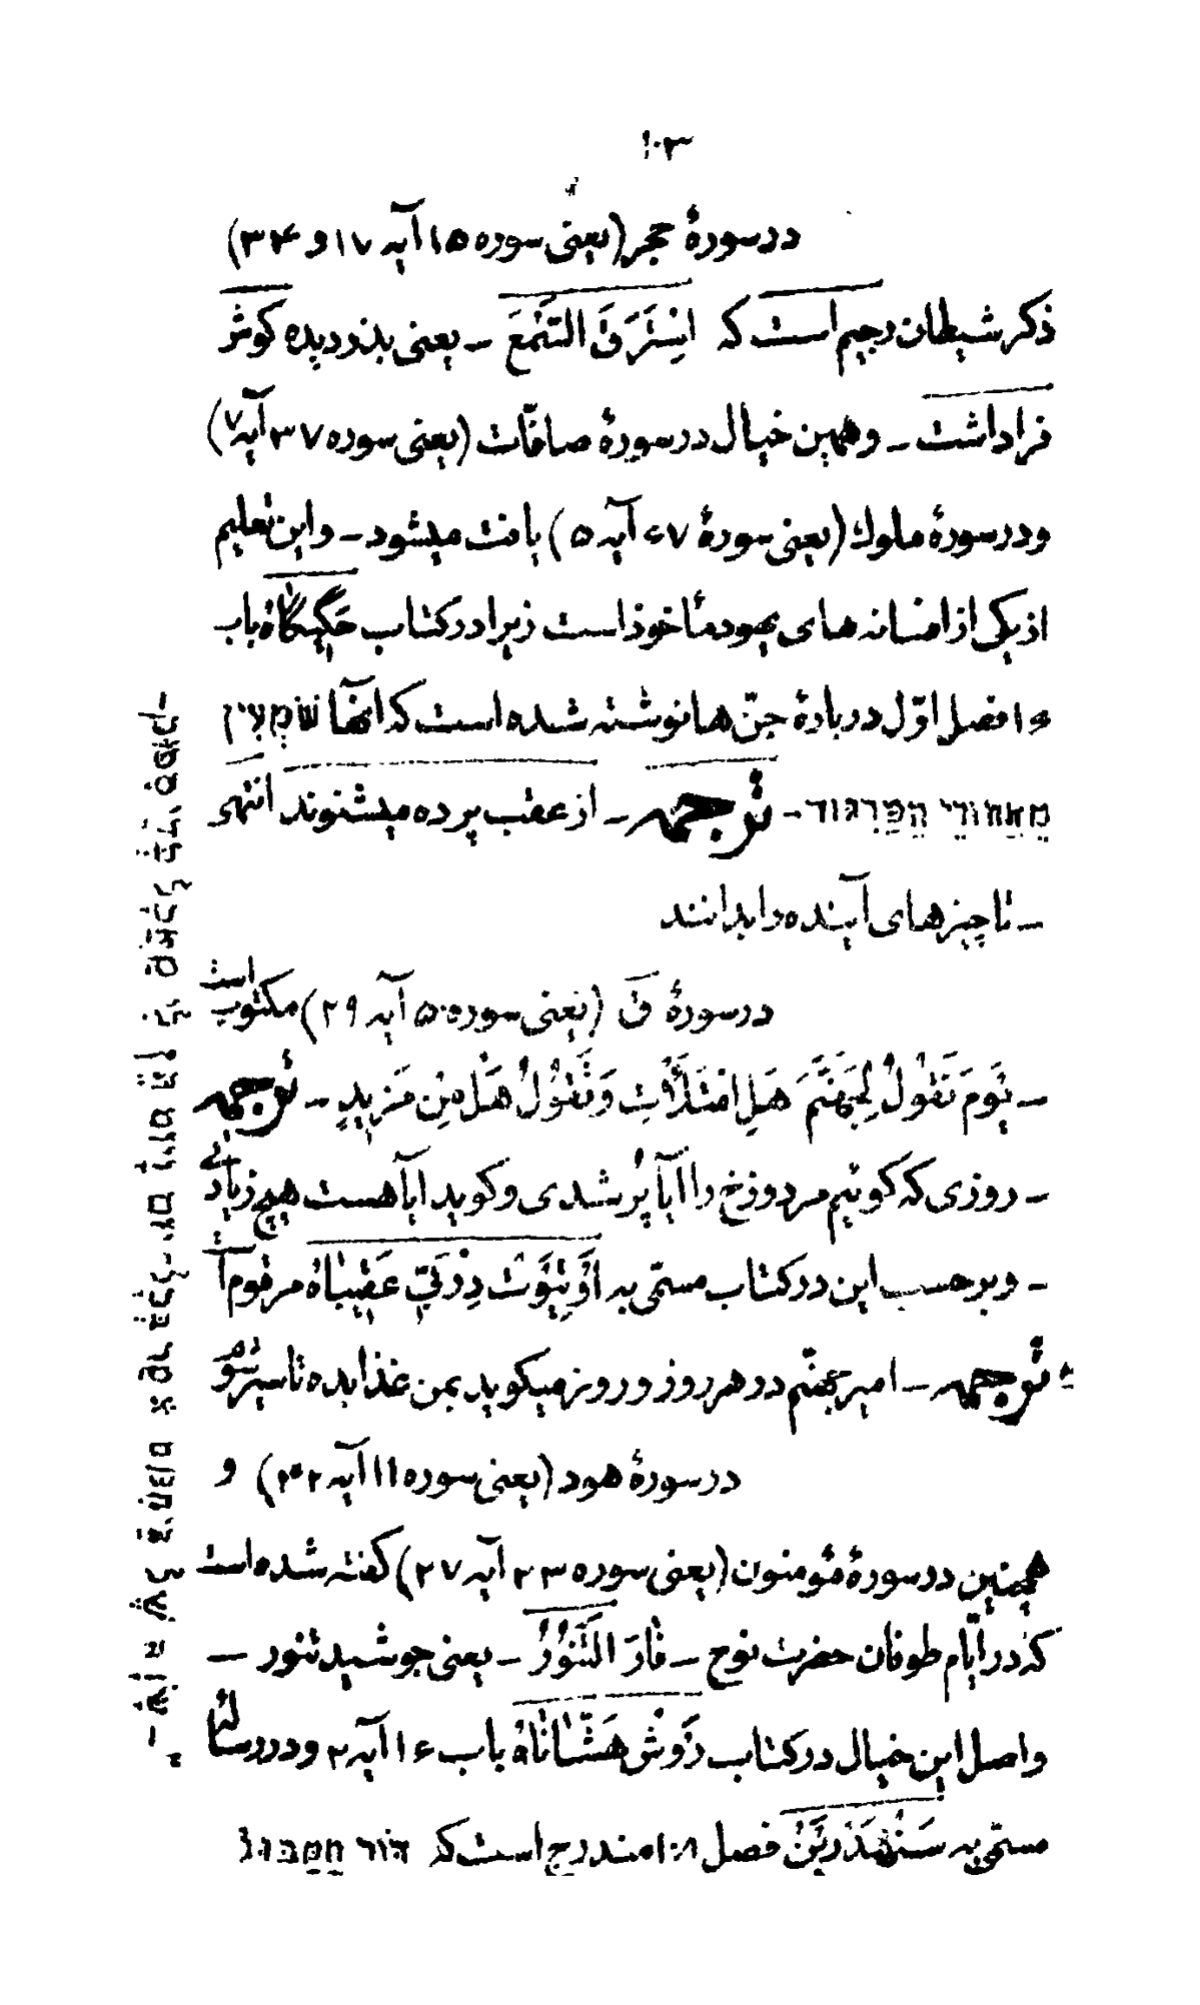 ۱۰۳
در سورهٔ حجر (یعنی سوره ۱۵ آیه ۱۷ و ۳۴)
ذکر شیطان رجیم است که اِسْتَرَقَ السَّمْعَ ـ یعنی بدزدیده کوش
فرا داشت ـ و همین خیال در سورهٔ صافّات (یعنی سوره ۳۷ آیه ۷)
و در سورهٔ ملوك (یعنی سورهٔ ۶۷ آیه ۵) یافت میشود ـ و این تعلیم
از یکی از افسانه های یهود مأخوذ است زیرا در کتاب حَگِیگاهْ باب
۱۵ فصل اوّل دربارهٔ جنّ ها نوشته شده است که آنها שׁוֹמְעִין
מֵאֲחוֹרֵי הַפַּרְגּוֹד ـ ترجمه ـ از عقب پرده میشنوند انتهی
ـ تا چیزهای آینده را بدانند
در سورهٔ قَ (یعنی سوره ۵۰ آیه ۲۹) مکتوب است
ـ یَوْمَ نَقُولُ لِجَهَنَّمَ هَلِ امْتَلَأْتِ وَتَقُولُ هَلْ مِنْ مَزِیدٍ ـ ترجمه
ـ روزی که کوئیم مر دوزخ را آیا پُر شدی و کوید آیا هست هیچ زیادتی
ـ و بر حسب این در کتاب مسمّی به اَوْتِیَوْت دِرْبِّي عَقِیبَاهْ مرقوم است
ترجمه ـ امیر جهنّم در هر روز و روز میکوید بمن غذا بده تا سیر شوم
در سورهٔ هود (یعنی سوره ۱۱ آیه ۴۲) و
همچنین در سورهٔ مؤمنون (یعنی سوره ۲۳ آیه ۲۷) کفته شده است
که در ایّام طوفان حضرت نوح ـ فَارَ التَّنُّورُ ـ یعنی جوشید تنور ـ
و اصل این خیال در کتاب رُوْش هَشَّانَاهْ باب ۱۶ آیه ۲ و در رسالهٔ
مسمّی به سَنْهَدْرِیْن فصل ۱۰۸ مندرج است که דּוֹר הַמַּבּוּל